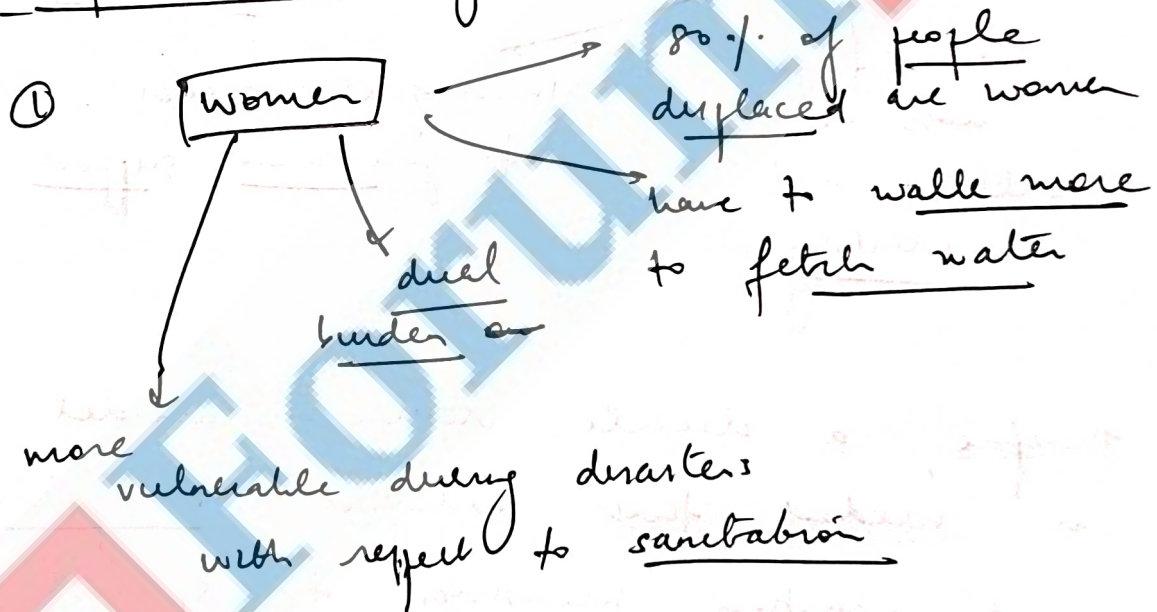 ①
women
80% of people
displaced are women
have to walk more
to fetch water
dual
burden
more
vulnerable during disasters
with respect to sanitation
Forum